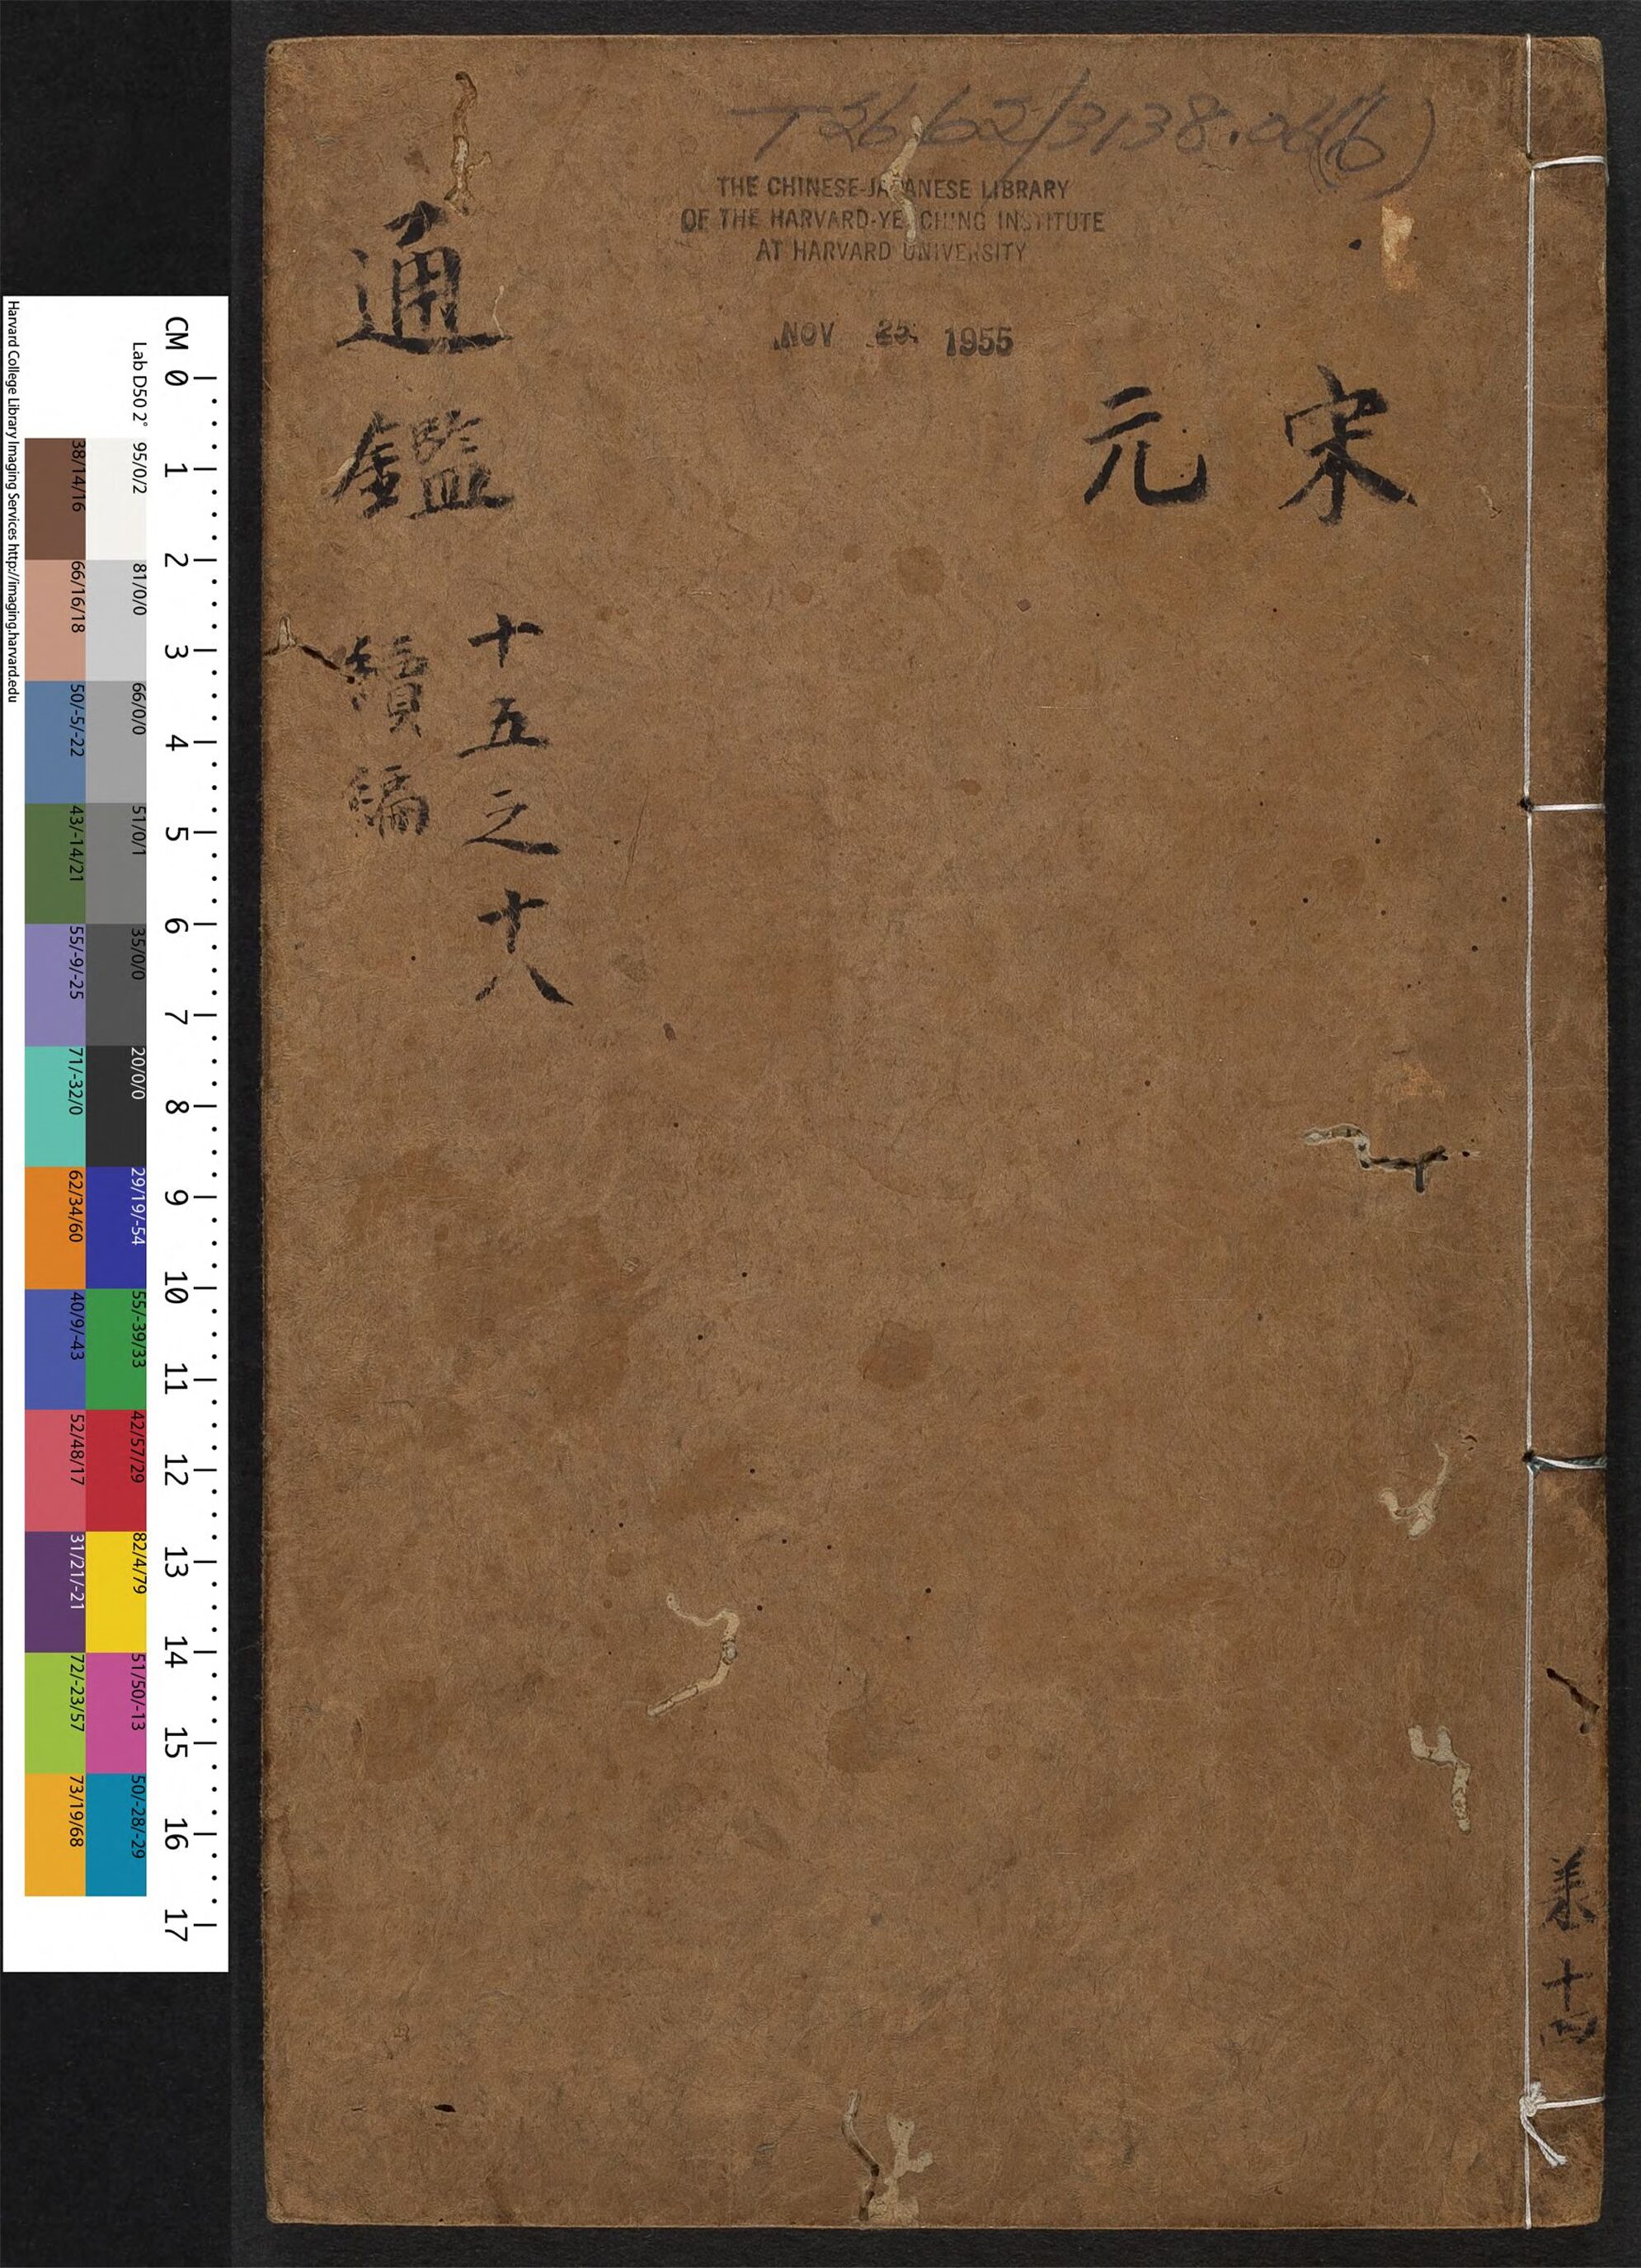 T 2662/3138.04(6)
THE CHINESE-JAPANESE LIBRARY
OF THE HARVARD-YENCHING INSTITUTE
AT HARVARD UNIVERSITY
NOV 25 1955
宋
元
通鑑
十五之十八
續編
十四
CM 0 1 2 3 4 5 6 7 8 9 10 11 12 13 14 15 16 17
Lab D50 2°
95/0/2
81/0/0
66/0/0
51/0/1
35/0/0
20/0/0
29/19/-54
55/-39/33
42/57/29
82/4/79
51/50/-13
50/-28/-29
38/14/16
66/16/18
50/-5/-22
43/-14/21
55/-9/-25
71/-32/0
62/34/60
40/9/-43
52/48/17
31/21/-21
72/-23/57
73/19/68
Harvard College Library Imaging Services http://imaging.harvard.edu